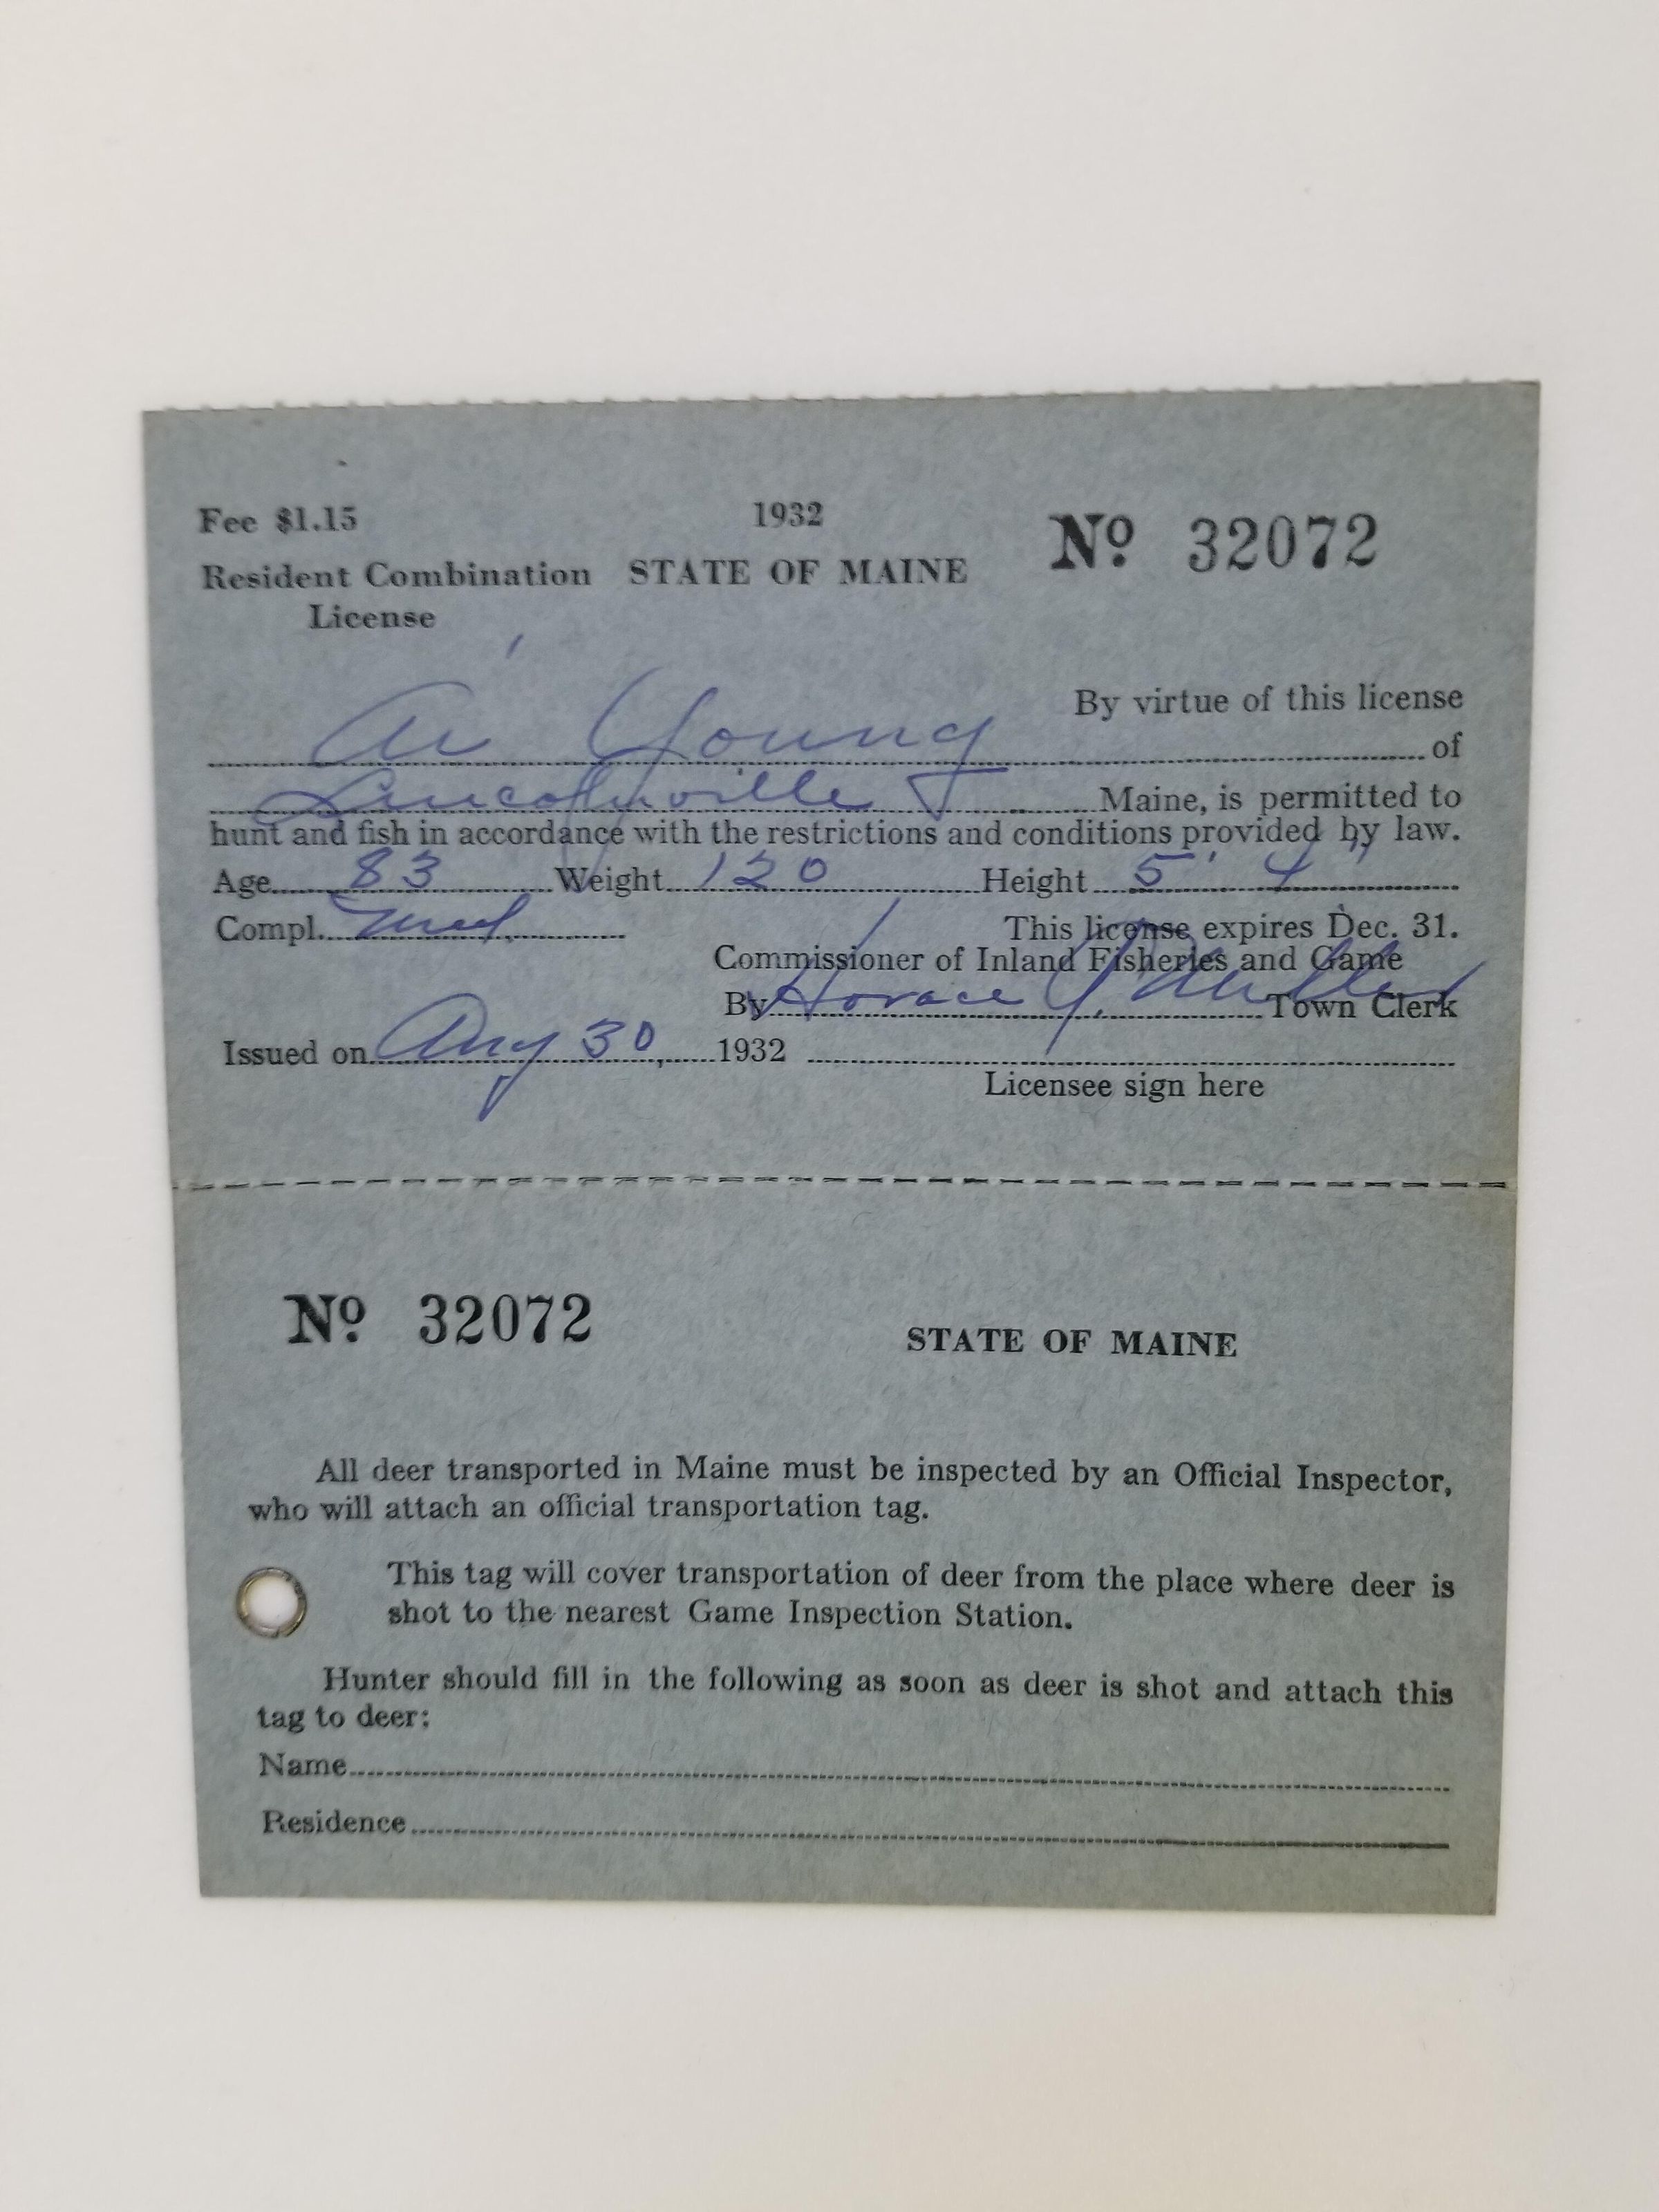 Fee $1.15 1932 No 32072
Resident Combination STATE OF MAINE
License
By virtue of this license
Ai Young of
Lincolnville Maine, is permitted to
hunt and fish in accordance with the restrictions and conditions provided by law.
Age 83 Weight 120 Height 5' 4"
Compl. Med This license expires Dec. 31.
Commissioner of Inland Fisheries and Game
By Horace J. Miller Town Clerk
Issued on Aug 30, 1932
Licensee sign here
No 32072
STATE OF MAINE
All deer transported in Maine must be inspected by an Official Inspector,
who will attach an official transportation tag.
This tag will cover transportation of deer from the place where deer is
shot to the nearest Game Inspection Station.
Hunter should fill in the following as soon as deer is shot and attach this
tag to deer:
Name
Residence